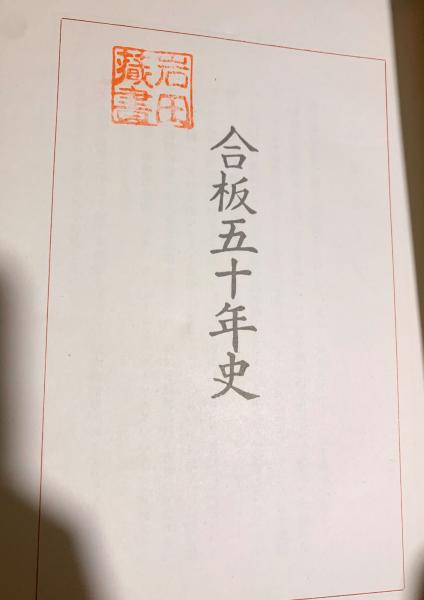 合板五十年史
岩田
蔵書